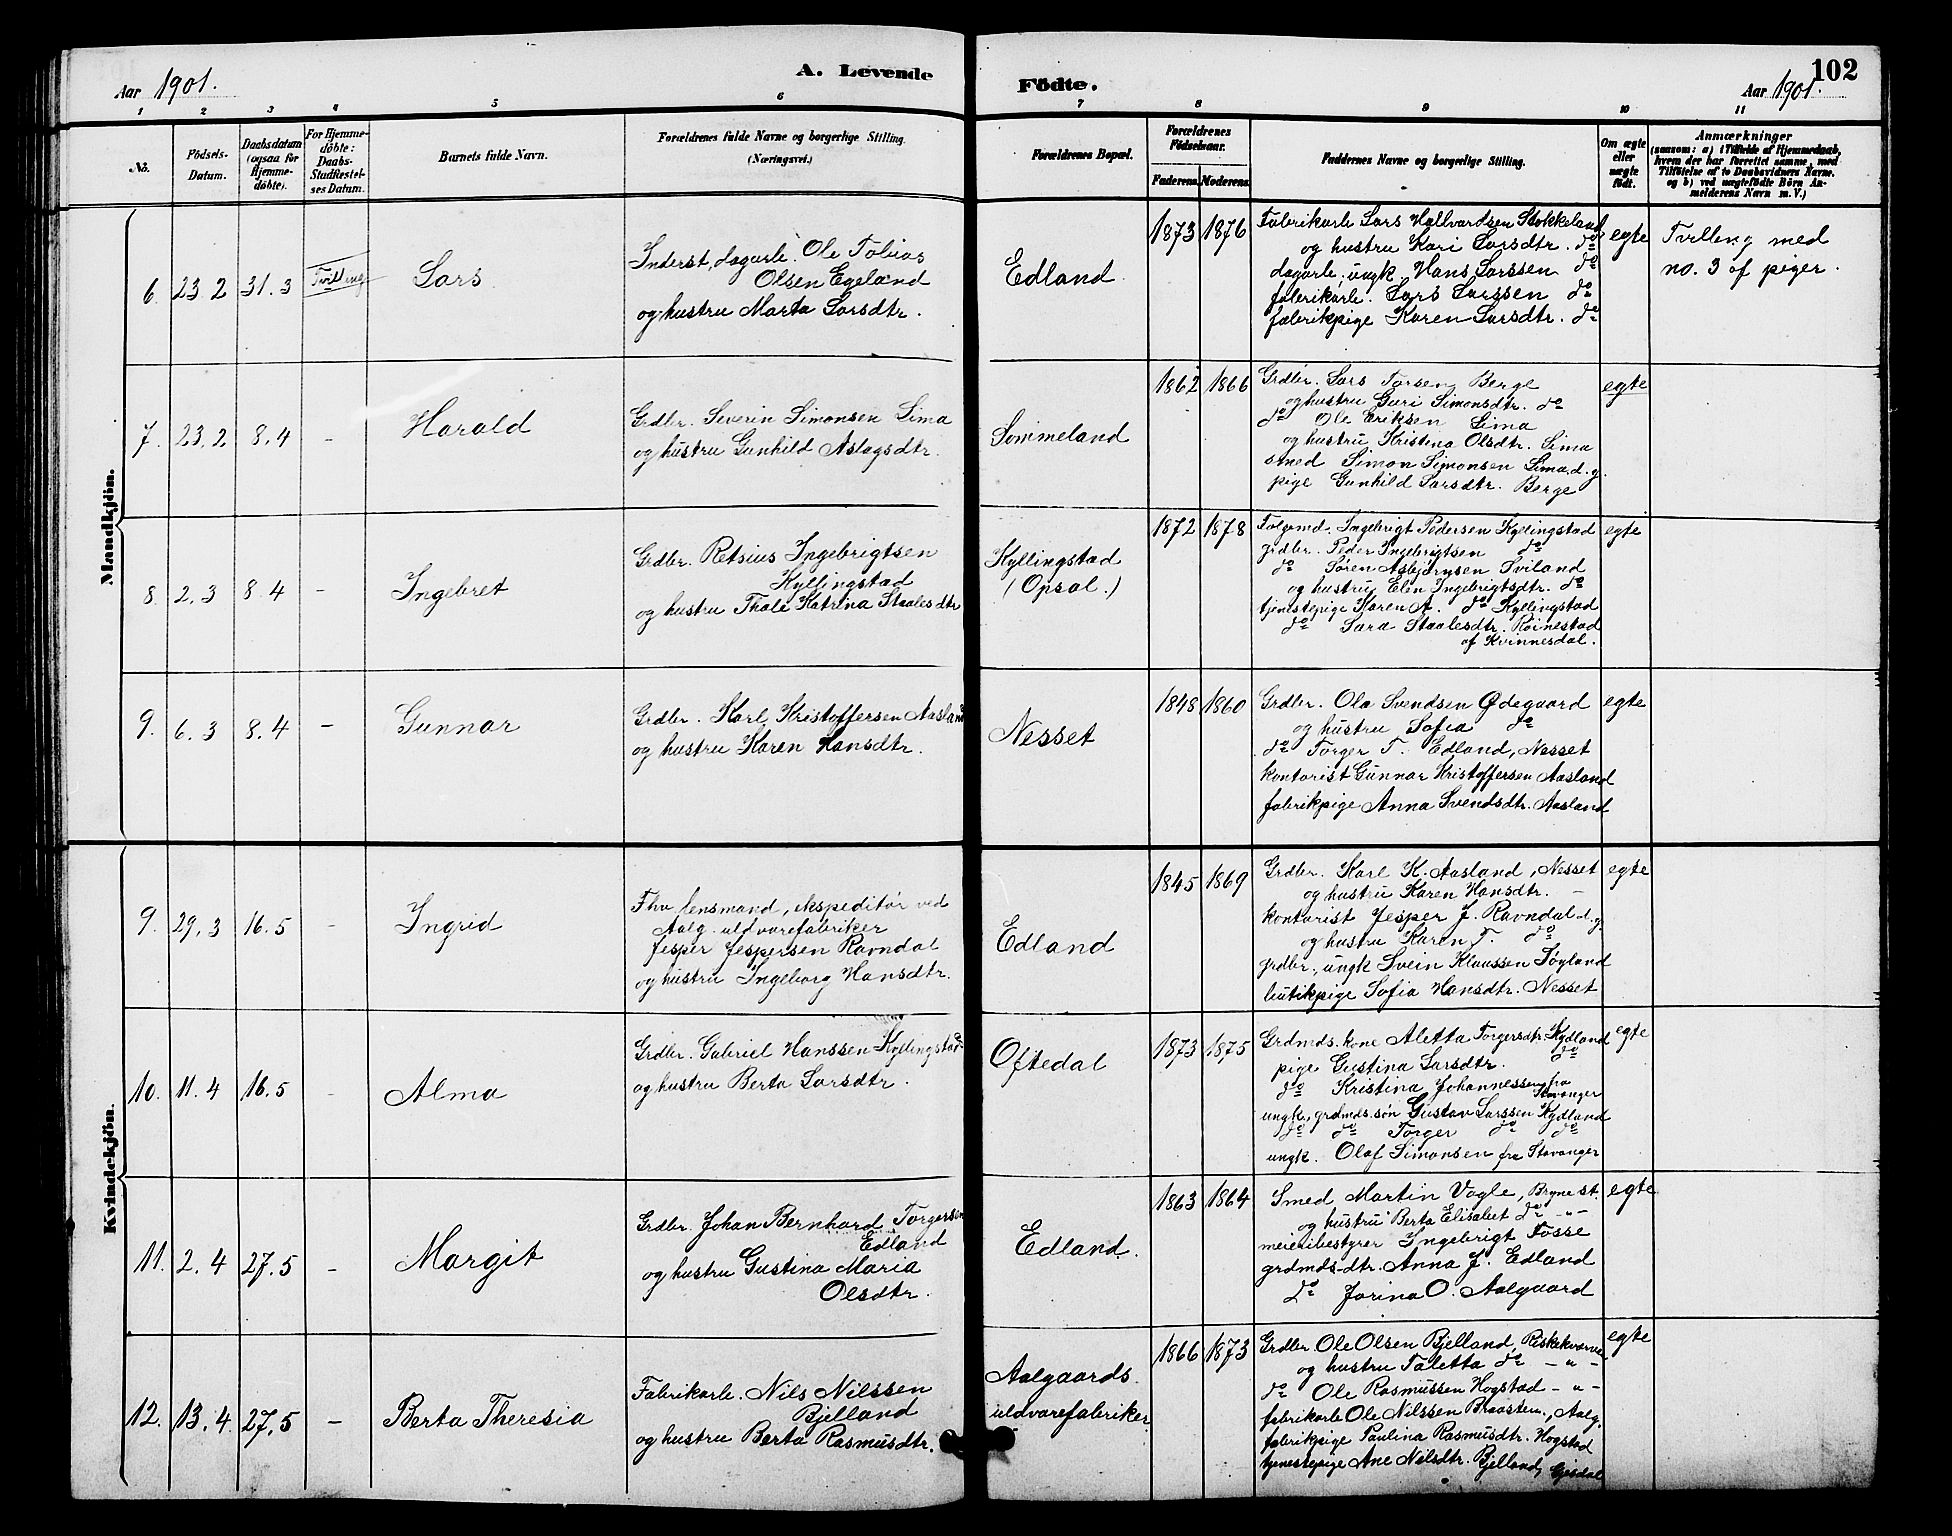 Aar 1901.
A. Levende
Födte.
102
Aar 1901.
1 2 3 4 5 6 7 8 9 10 11
No.
Födsels-
Datum.
Daabsdatum
(ogsaa for
Hjemme-
döbte).
For Hjemme-
döbte:
Daabs-
Stadfæstel-
ses Datum.
Barnets fulde Navn.
Forældrenes fulde Navne og borgerlige Stilling.
(Næringsvei.)
Forældrenes Bopæl.
Forældrenes
Födselsaar.
Faderens. Moderens.
Faddernes Navne og borgerlige Stilling.
Om ægte
eller
uægte
födt.
Anmærkninger
(saasom: a) i Tilfælde af Hjemmedaab,
hvem der har forrettet samme, med
Tilföielse af to Daabsvidners Navne,
og b) ved uægtefödte Börn An-
melderens Navn m. V.)
Mandkjön.
6. 23.2 31.3 Tvilling Lars
Inderst, dagarb. Ole Tobias
Olsen Egeland
og hustru Marta Larsdtr.
Edland
1873 1876
Fabrikarb. Lars Hallvardsen Stokkeland
og hustru Kari Larsdtr. do
dagarb. ungk. Hans Larssen do
fabrikarb. Lars Larssen do
fabrikpige Karen Larsdtr. do
egte
Tvilling med
no. 3 af piger.
7. 23.2 8.4 - Harald
Grdbr. Severin Simonsen Lima
og hustru Gunhild Aslagsdtr.
Sommeland
1862 1866
Grdbr. Lars Torsen Berge
og hustru Guri Simonsdtr. do
do Ole Eriksen Lima
og hustru Kristena Olsdtr. Lima
smed Simon Simonsen Lima, d.y.
pige Gunhild Larsdtr. Berge
egte
8. 2.3 8.4 - Ingebret
Grdbr. Retsius Ingebrigtsen
Kyllingstad
og hustru Thale Katrina Staalesdtr
Kyllingstad
(Opsal.)
1872 1878
Folgemd. Ingebrigt Pedersen Kyllingstad
grdbr. Peder Ingebrigtsen do
do Søren Asbjørnsen Tviland
og hustru Elen Ingebrigtsdtr. do
tjenstepige Karen A. do Kyllingstad
do Sara Staalesdtr. Røinestad
af Kvinnesdal.
egte
9. 6.3 8.4 - Gunnar
Grdbr. Karl Kristoffersen Aasland
og hustru Karen Hansdtr.
Nesset
1848 1860
Grdbr. Ola Svendsen Ødegaard
og hustru Sofia do
do Torger T. Edland, Nesset
kontorist Gunnar Kristoffersen Aasland
fabrikpige Anna Svendsdtr. Aasland
egte
Kvindekjön.
9. 29.3 16.5 - Ingrid
Fhv. lensmand, ekspeditør ved
Aalg. uldvarefabriker
Jesper Jespersen Ravndal
og hustru Ingeborg Hansdtr.
Edland
1845 1869
Grdbr. Karl K. Aasland, Nesset
og hustru Karen Hansdtr. -
kontorist Jesper J. Ravndal d.y.
og hustru Karen T. do
grdbr., ungk Svein Klaussen Tøgland
butikpige Sofia Hansdtr. Nesset
egte
10. 11.4 16.5 - Alma
Grdbr. Gabriel Hanssen Kyllingstad
og hustru Berta Larsdtr.
Oftedal
1873 1875
Grdmds. kone Aletta Torgersdtr. Kydland
pige Gustina Larsdtr. do
do Kristina Johannessen fra
Stavanger
ungk., grdmds.søn Gustav Larssen Kydland
do do Torger do do
ungk. Olaf Simonsen fra Stavanger
egte
11. 2.4 27.5 - Margit
Grdbr. Johan Bernhard Torgersen
Edland
og hustru Gustina Maria
Olsdtr.
Edland.
1863 1864
Smed Martin Vagle, Bryne st.
og hustru Berta Elisabet do -"-
meieribestyrer Ingebrigt Fosse
grdmds-dtr. Anna J. Edland
do Jorina O. Aalgaard
egte
12. 13.4 27.5 - Berta Theresia
Fabrikarb. Nils Nilssen
Bjelland
og hustru Berta Rasmusdtr.
Aalgaards
uldvarefabriker
1866 1873
Grdbr. Ole Olsen Bjelland,
og hustru Taletta do -"-
do Ole Rasmussen Hogstad -"-
fabrikarb. Ole Nilssen Braasten, Aalg.
fabrikpige Paulina Rasmusdtr. Hogstad
tjenestepige Ane Nilsdtr. Bjelland, Gjesdal
egte